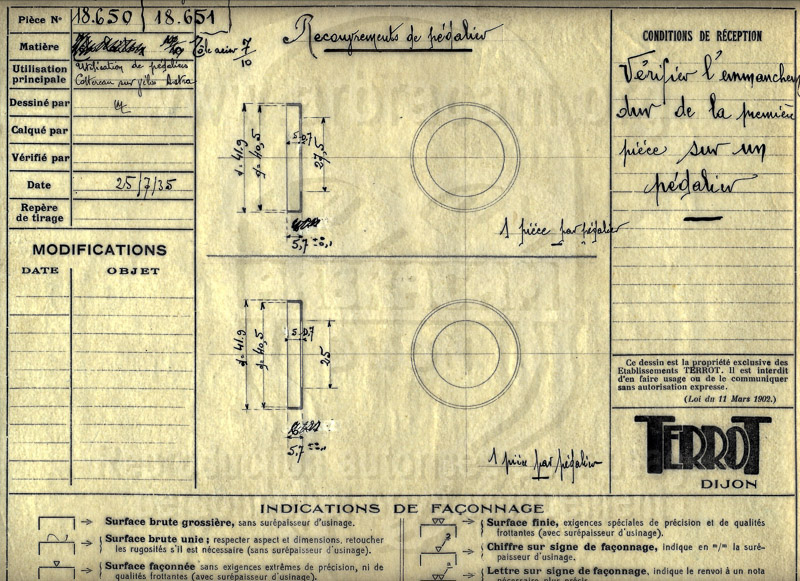 Pièce Nº 18.650 / 18.651
Matière Tôle acier 7/10
Utilisation principale Utilisation de pédaliers
Cottereau sur vélos Astra
Dessiné par
Calqué par
Vérifié par
Date 25/7/35
Repère de tirage
MODIFICATIONS
DATE OBJET
Recouvrements de pédalier
ø= 41.9
ø= 40,5
5
0,7
27,5
5,7
1 pièce par pédalier
ø= 41.9
ø= 40,5
5
0,7
25
5.7
1 pièce par pédalier
CONDITIONS DE RÉCEPTION
Vérifier l'emmanchement
dur de la première
pièce sur un
pédalier
Ce dessin est la propriété exclusive des
Etablissements TERROT. Il est interdit
d'en faire usage ou de le communiquer
sans autorisation expresse.
(Loi du 11 Mars 1902.)
TERROT
DIJON
INDICATIONS DE FAÇONNAGE
Surface brute grossière, sans surépaisseur d'usinage.
Surface brute unie; respecter aspect et dimensions, retoucher
les rugosités s'il est nécessaire (sans surépaisseur d'usinage).
Surface façonnée sans exigences extrêmes de précision, ni de
qualités frottantes (avec surépaisseur d'usinage).
Surface finie, exigences spéciales de précision et de qualités
frottantes (avec surépaisseur d'usinage).
Chiffre sur signe de façonnage, indique en m/m la suré-
paisseur d'usinage.
Lettre sur signe de façonnage, indique le renvoi à un nota